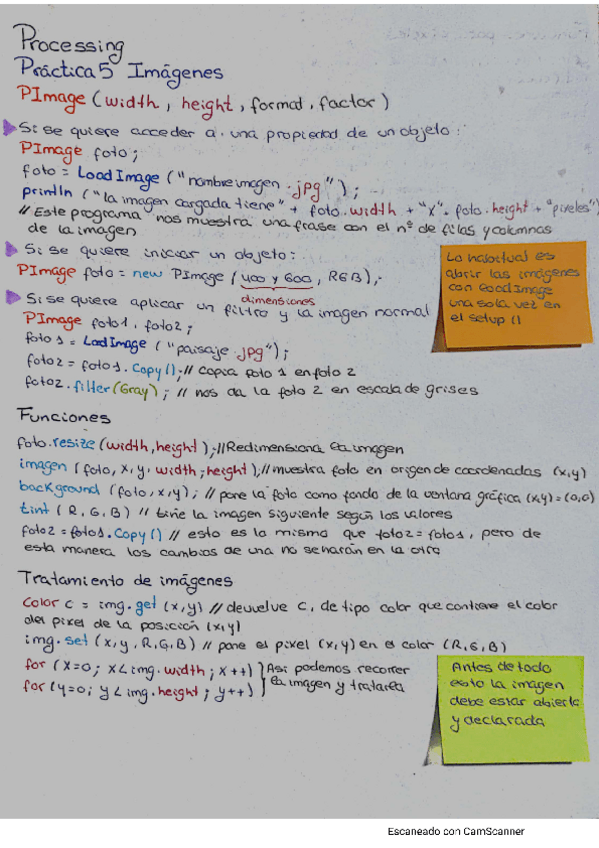 Processing
Práctica 5 Imágenes
PImage (width, height, format, factor)
Si se quiere acceder a una propiedad de un objeto:
PImage foto;
foto = LoadImage ("nombreimagen.jpg");
println ("la imagen cargada tiene" + foto.width + "x" + foto.height + "pixeles")
// Este programa nos muestra una frase con el nº de filas y columnas
de la imagen
Si se quiere iniciar un objeto:
PImage foto = new PImage (400 y 600, RGB);
dimensiones
Lo habitual es
abrir las imágenes
con LoadImage
una sola vez en
el setup ()
Si se quiere aplicar un filtro y la imagen normal
PImage foto1, foto2;
foto1 = LoadImage ("paisaje.jpg");
foto2 = foto1.Copy(); // copia foto 1 en foto 2
foto2.filter(Gray); // nos da la foto 2 en escala de grises
Funciones
foto.resize (width, height); //Redimensiona la imagen
imagen (foto, x, y, width, height); //muestra foto en origen de coordenadas (x,y)
background (foto, x, y); // pone la foto como fondo de la ventana gráfica (x,y)=(0,0)
tint (R, G, B) // tiñe la imagen siguiente según los valores
foto2 = foto1.Copy() // esto es lo mismo que foto2 = foto1, pero de
esta manera los cambios de una no se harán en la otra
Tratamiento de imágenes
Color c = img.get (x,y) // devuelve c, de tipo color que contiene el color
del pixel de la posición (x,y)
img.set (x, y, R, G, B) // pone el pixel (x,y) en el color (R, G, B)
for (x=0; x<img.width; x++) } Asi podemos recorrer
for (y=0; y<img.height; y++) } la imagen y tratarla
Antes de todo
esto la imagen
debe estar abierta
y declarada
Escaneado con CamScanner